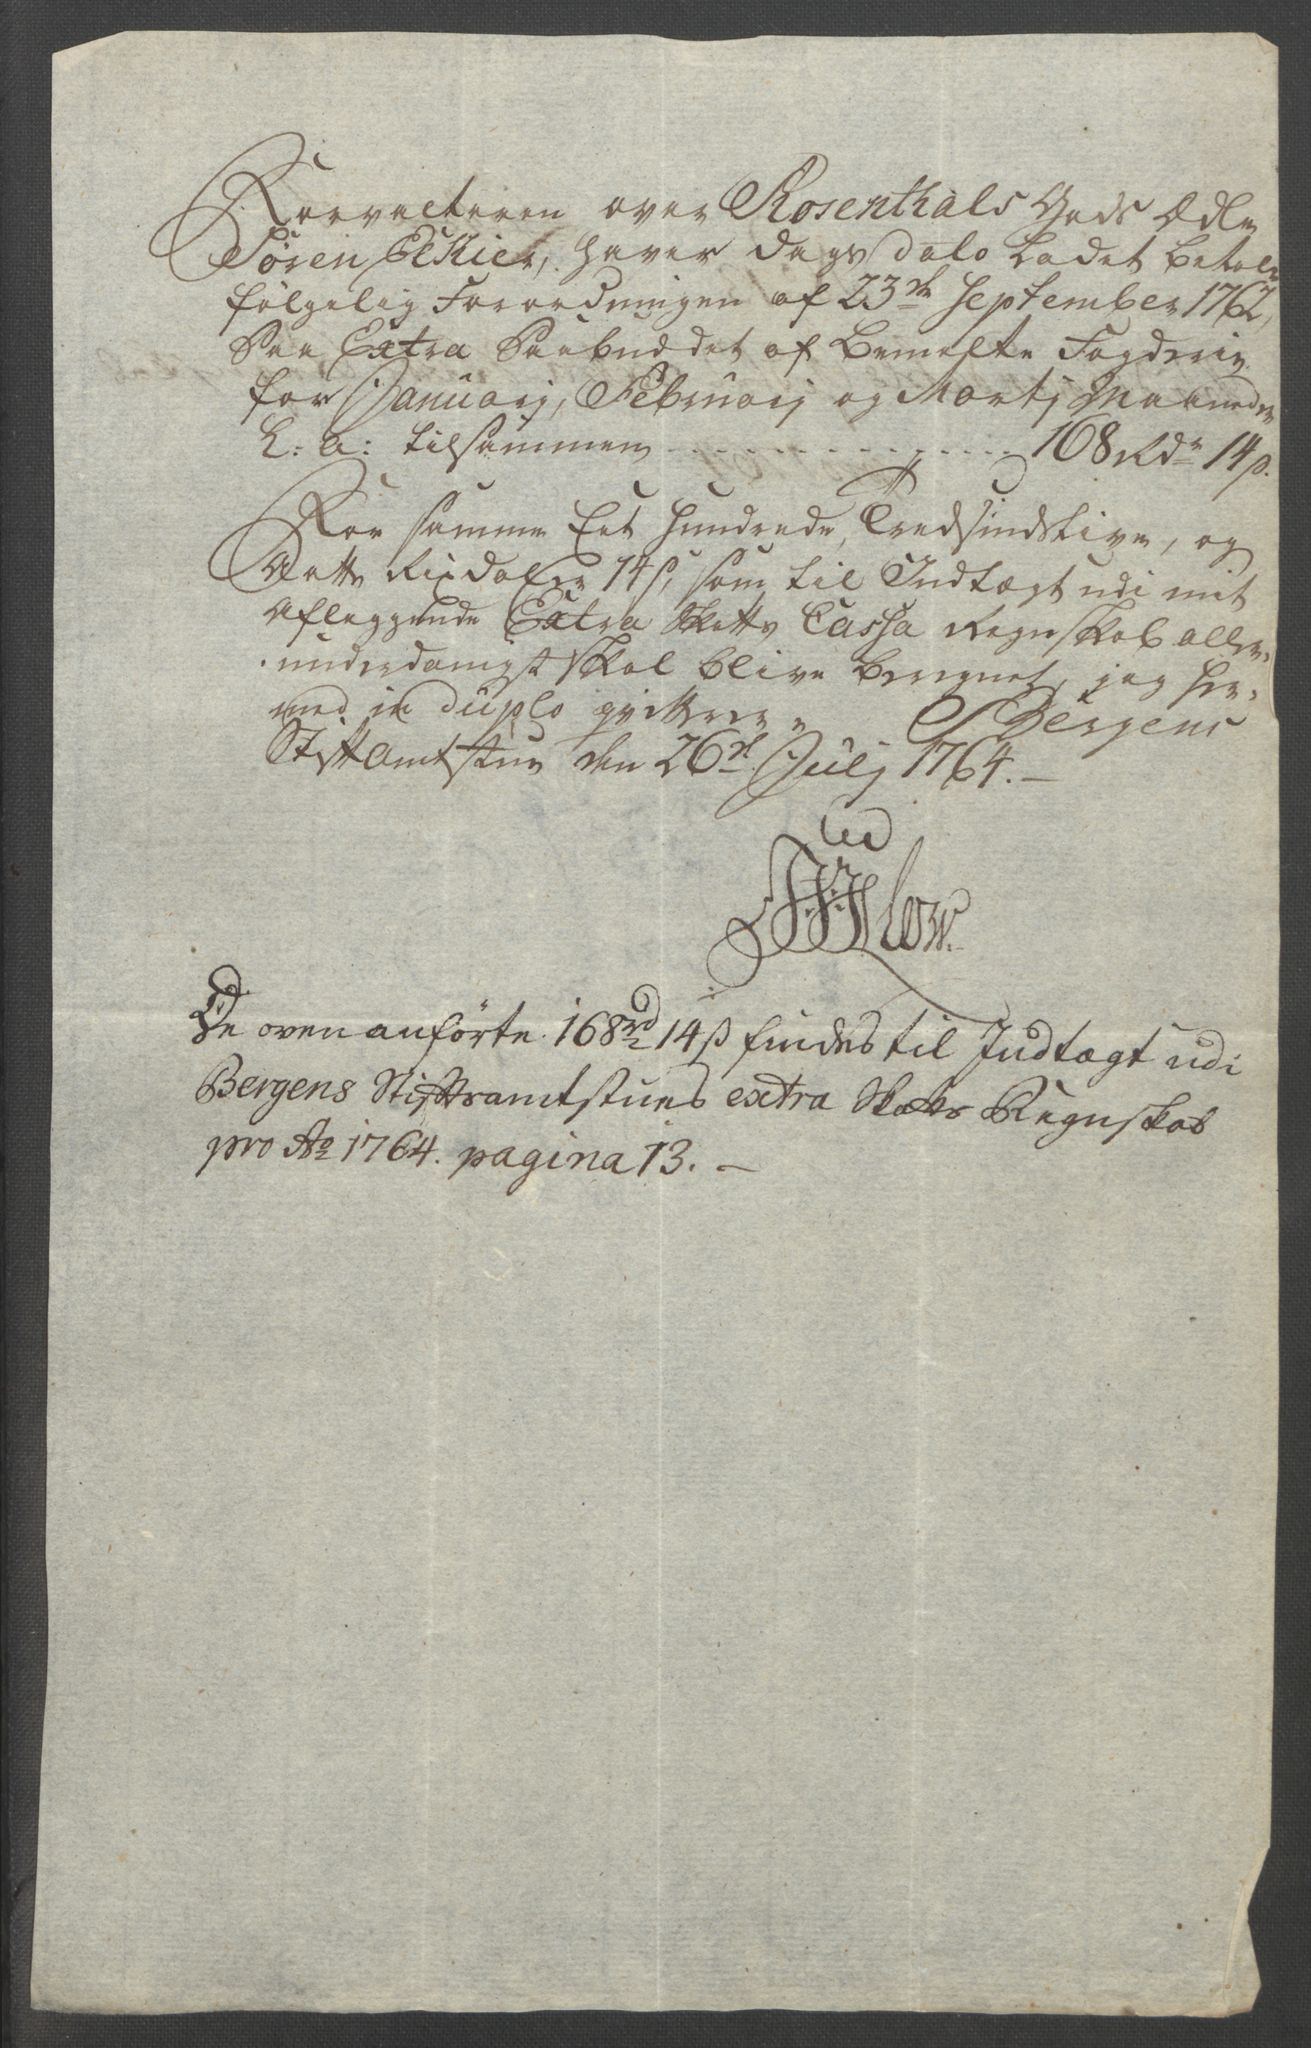 Forvalteren over Rosenthals Gods Ædle
Søren Elkier, haver dags dato ladet betale
følgelig Forordningen af 23de September 1762,
Paa Extra Paabuddet af bemelte Fogderie
for Januarij, Februarij og Martij Maaneder
h: a: tilsammen . . . . . . . . . . . . 168 Rdr 14 s.
For samme Eet Hundrede, Tredsindstive, og
Aatte Rixdaler 14 s, som til Indtægt udi mit
aflæggende Extra Skatts Cassa Regnskab aller-
underdanigst skal blive beregnet, jeg her-
med in duplo qvitterer. Bergens
Stiftamtstue den 26de Julij 1764. —
De ovenanførte 168 rd 14 s findes til Indtægt udi
Bergens Stiftsamtstues extra Skatts Regnskab
pro Ao 1764. pagina 13. —